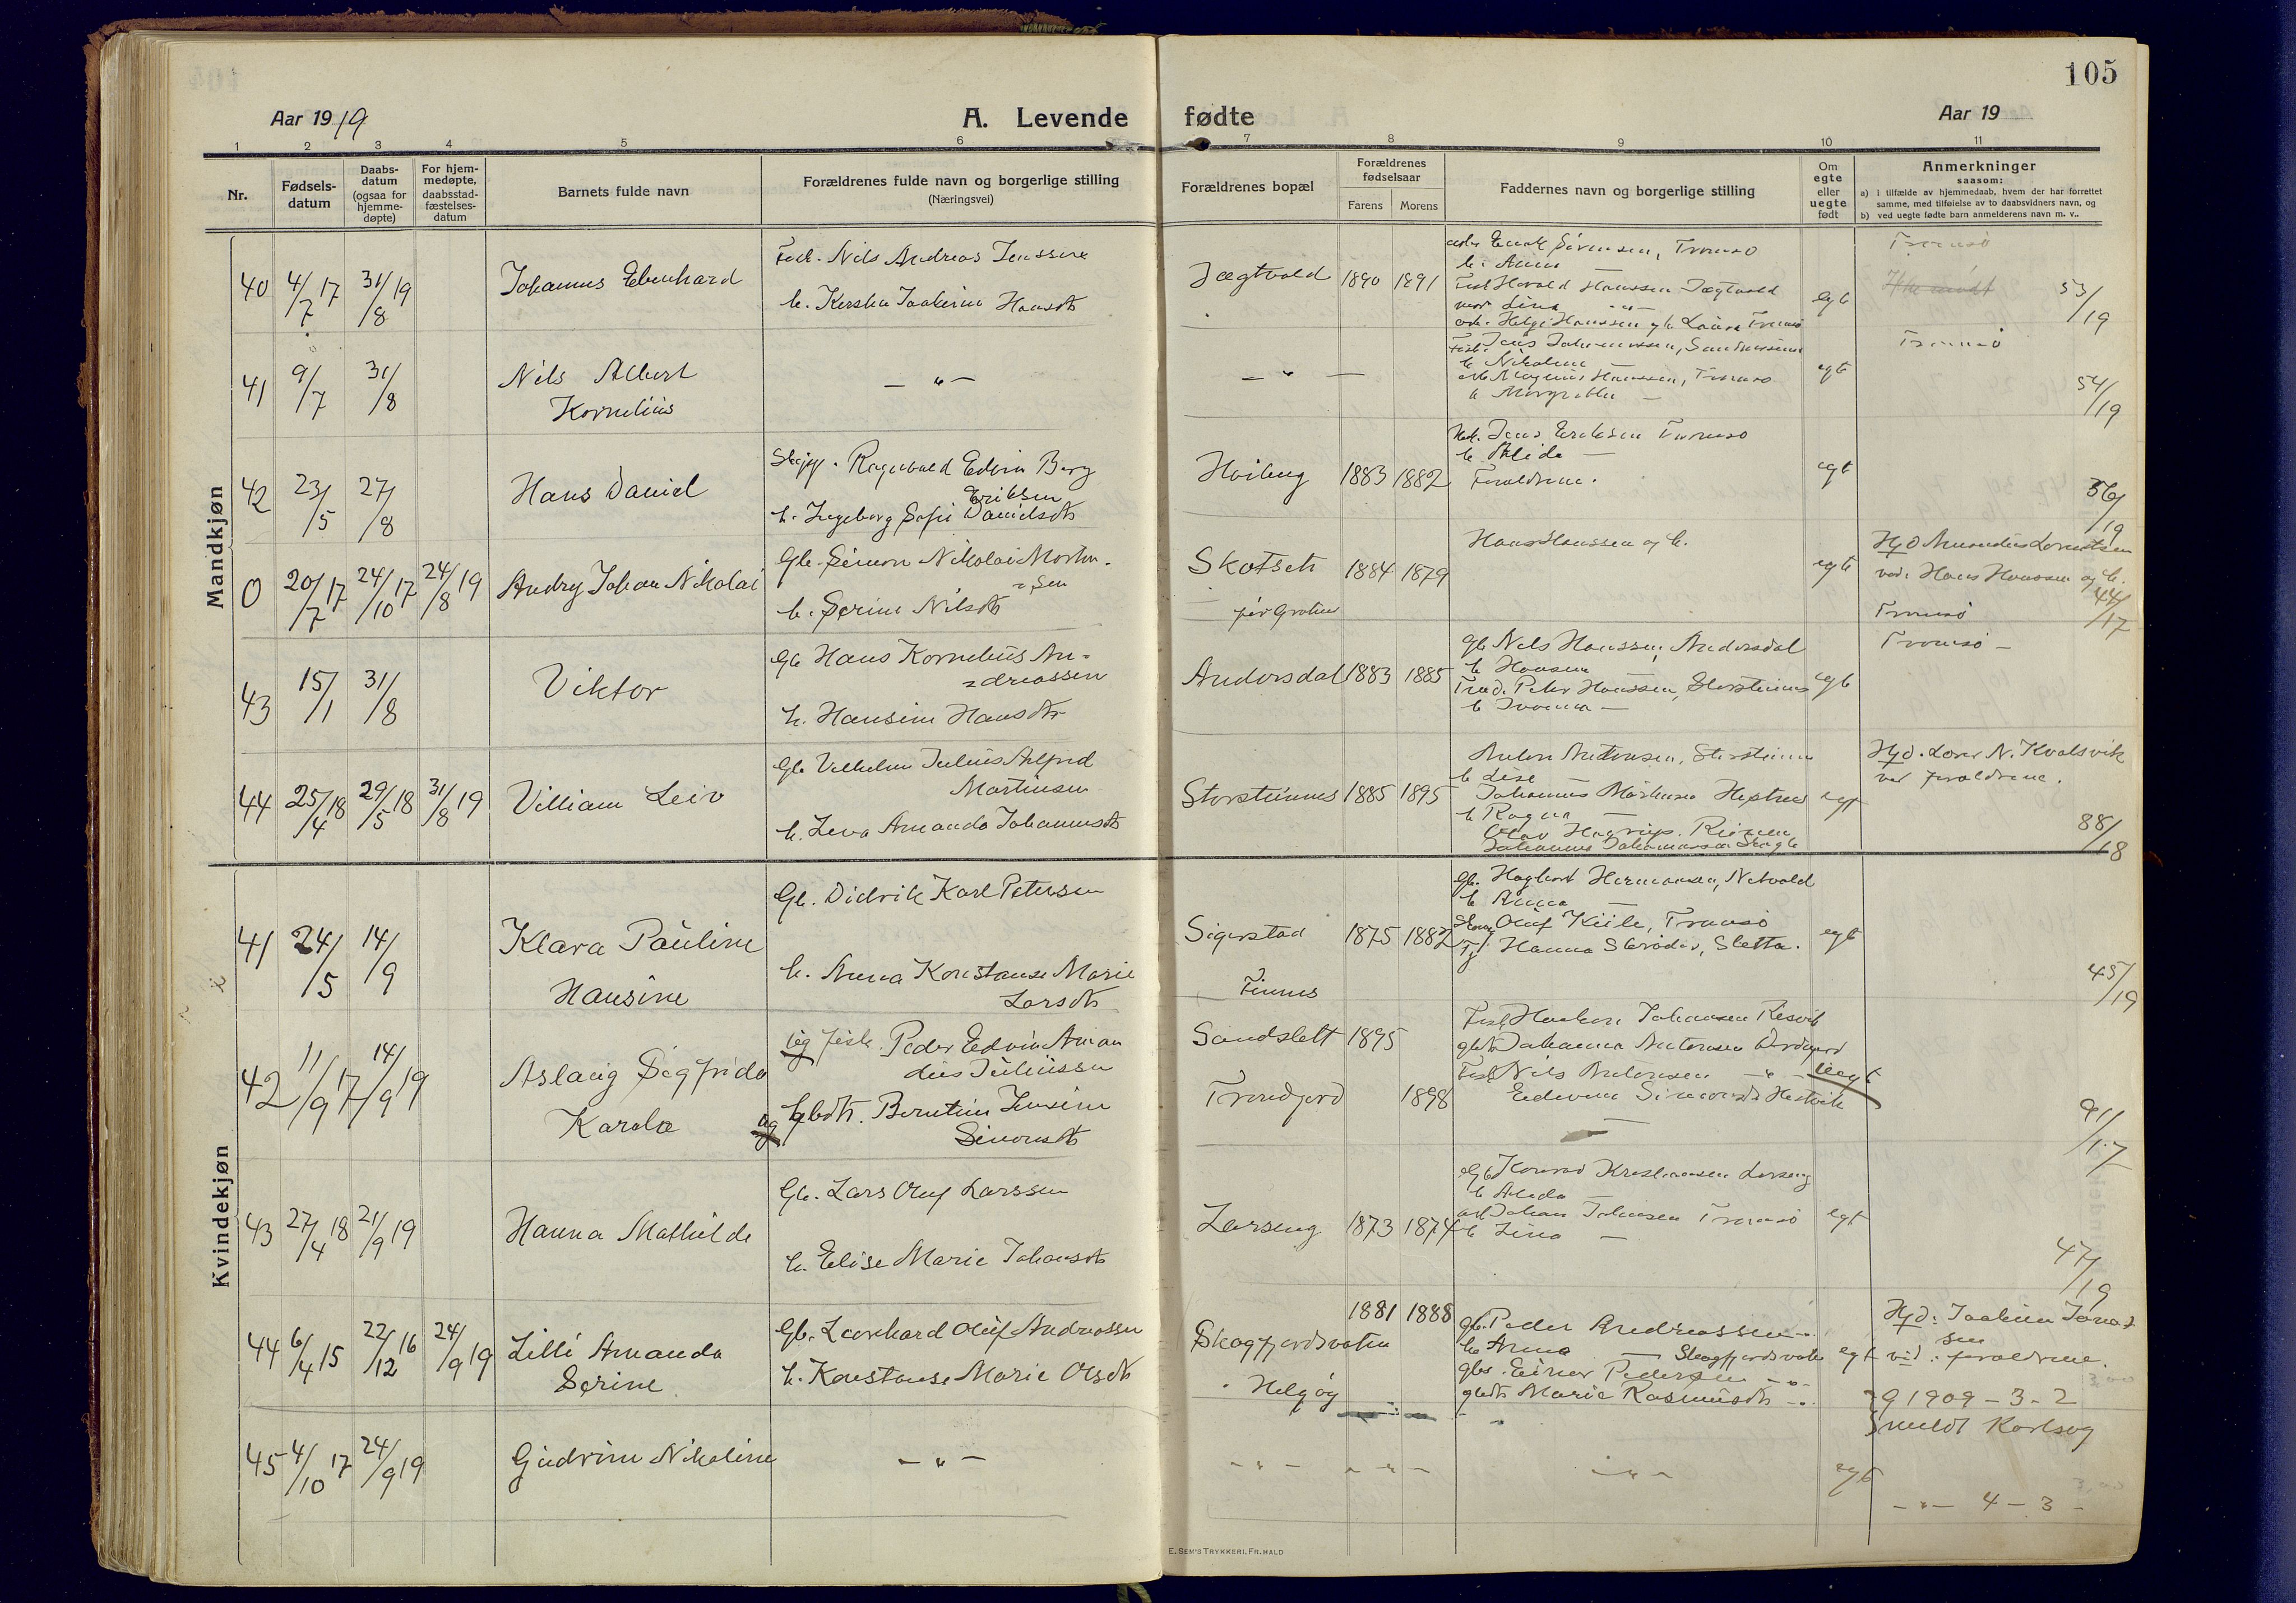 105
Aar 1919
A. Levende fødte
Aar 19
1 2 3 4 5 6 7 8 9 10 11
Nr.
Fødsels-
datum
Daabs-
datum
(ogsaa for
hjemme-
døpte)
For hjem-
medøpte,
daabsstad-
fæstelses-
datum
Barnets fulde navn
Forældrenes fulde navn og borgerlige stilling
(Næringsvei)
Forældrenes bopæl
Forældrenes
fødselsaar
Farens Morens
Faddernes navn og borgerlige stilling
Om
egte
eller
uegte
født
Anmerkninger
saasom:
a) i tilfælde av hjemmedaab, hvem der har forrettet
samme, med tilføielse av to daabsvidners navn, og
b) ved uegte fødte barn anmelderens navn m. v..
Mandkjøn
40 4/7 17 31/8 19
Johannes Ebenhard
Nils Andreas Jenssen
h. Kersten Joakime Hansdt
Jægtvold 1890 1891
Enok Sørensen, Tromsø
h. Anna —
Harald Hanssen Jægtvold
Lina
Helge Hanssen og h. Laura Tromsø
egt
Tromsø
53/19
41 9/7 31/8
Nils Albert
Kornelius
— " —
— " —
Jens Johannessen,
h. Nikoline —
Magnus Hanssen, Tromsø
h. Margrethe —
egt
Tromsø
54/19
42 23/5 27/8
Hans Daniel
Skipp. Ragnvald Edvin Berg
Eriksen
h. Ingeborg Sofie Danielsdt
Høiberg 1883 1882
Jens Eriksen Tromsø
h. Alida —
Forældrene.
egt
56/19
0 20/7 17 24/10 17 24/8 19
Andry Johan Nikolai
Gb. Simon Nikolai Morten-
sen
h. Serine Nilsdt
Skotseth 1884 1879
Hans Hanssen og h.
egt
HjD Amandus Lorentsen
ved: Hans Hanssen og h.
44/17
Tromsø
43 15/1 31/8
Viktor
Gb Hans Kornelius An-
dreassen
h. Hansine Hansdtr
Andersdal 1883 1885
gb Nels Hanssen, Andersdal
h Hansine
Peter Hanssen, Storsteinnes
egt
Tromsø —
44 25/4 18 29/5 18 31/8 19
Villiam Leiv
Gb Vilhelm Julius Alfred
Martinsen
h. Leva Amanda Johannesdt
Storsteinnes 1885 1895
Anton Antonsen, Storsteinnes
h Lise
Johannes Mortensen
h Ragna —
egt
HjD. Lærer N. Kvalsvik
ved forældrene.
88/18
Kvindekjøn
41 24/5 14/9
Klara Pauline
Hansine
Gb. Didrik Karl Petersen
h. Anna Konstanse Marie
Larsdt
Sigerstad 1875 1882
Finnes
Gb. Hagbart Hermansen,
h Anna —
Oluf Kiile, Tromsø
Hanna Skrøder, Sletta.
egt
45/19
42 11/9 17 14/9 19
Aslaug Sigfrida
Karola
ug fisk. Peder Edvin Aman
dus Juliussen
ug gbdt. Berntine Jensine
Simonsdt
Sandslett 1895
Tromfjord 1898
Fisk Haakon Johansen Risvik
Johanna Antonsen
Fisk Nils Antonsen — " —
Edvine Simonsdt Hestvik
Uegt
91/17
43 27/4 18 21/9 19
Hanna Mathilde
Gb. Lars Oluf Larssen
h. Elise Marie Johansdt
Larseng 1873 1874
Gb Konrad Kristiansen Larseng
h Aleda —
Johan Johansen Tromsø
h Lina —
egt
47/19
44 6/4 15 22/12 16 24/9 19
Lilli Amanda
Serine
Gb. Leonhard Oluf Andreassen
h. Konstanse Marie Olsdt
Skogfjordvatn
Helgøy
1881 1888
gb. Peder Andreassen —
h. Anna — Skogfjordsvatn
gbs. Einar Pedersen — " —
gbdt Marie Rasmusdt —
egt
HjD: Joakim Jonas-
sen
vid: forældrene.
g 1909 - 3 - 2
meldt Karlsøy
45 4/10 17 24/9 19
Gudrun Nikoline
— " —
— " — — " —
— " —
egt
— " — 4 — 3 —
E. SEM'S TRYKKERI, FR.HALD